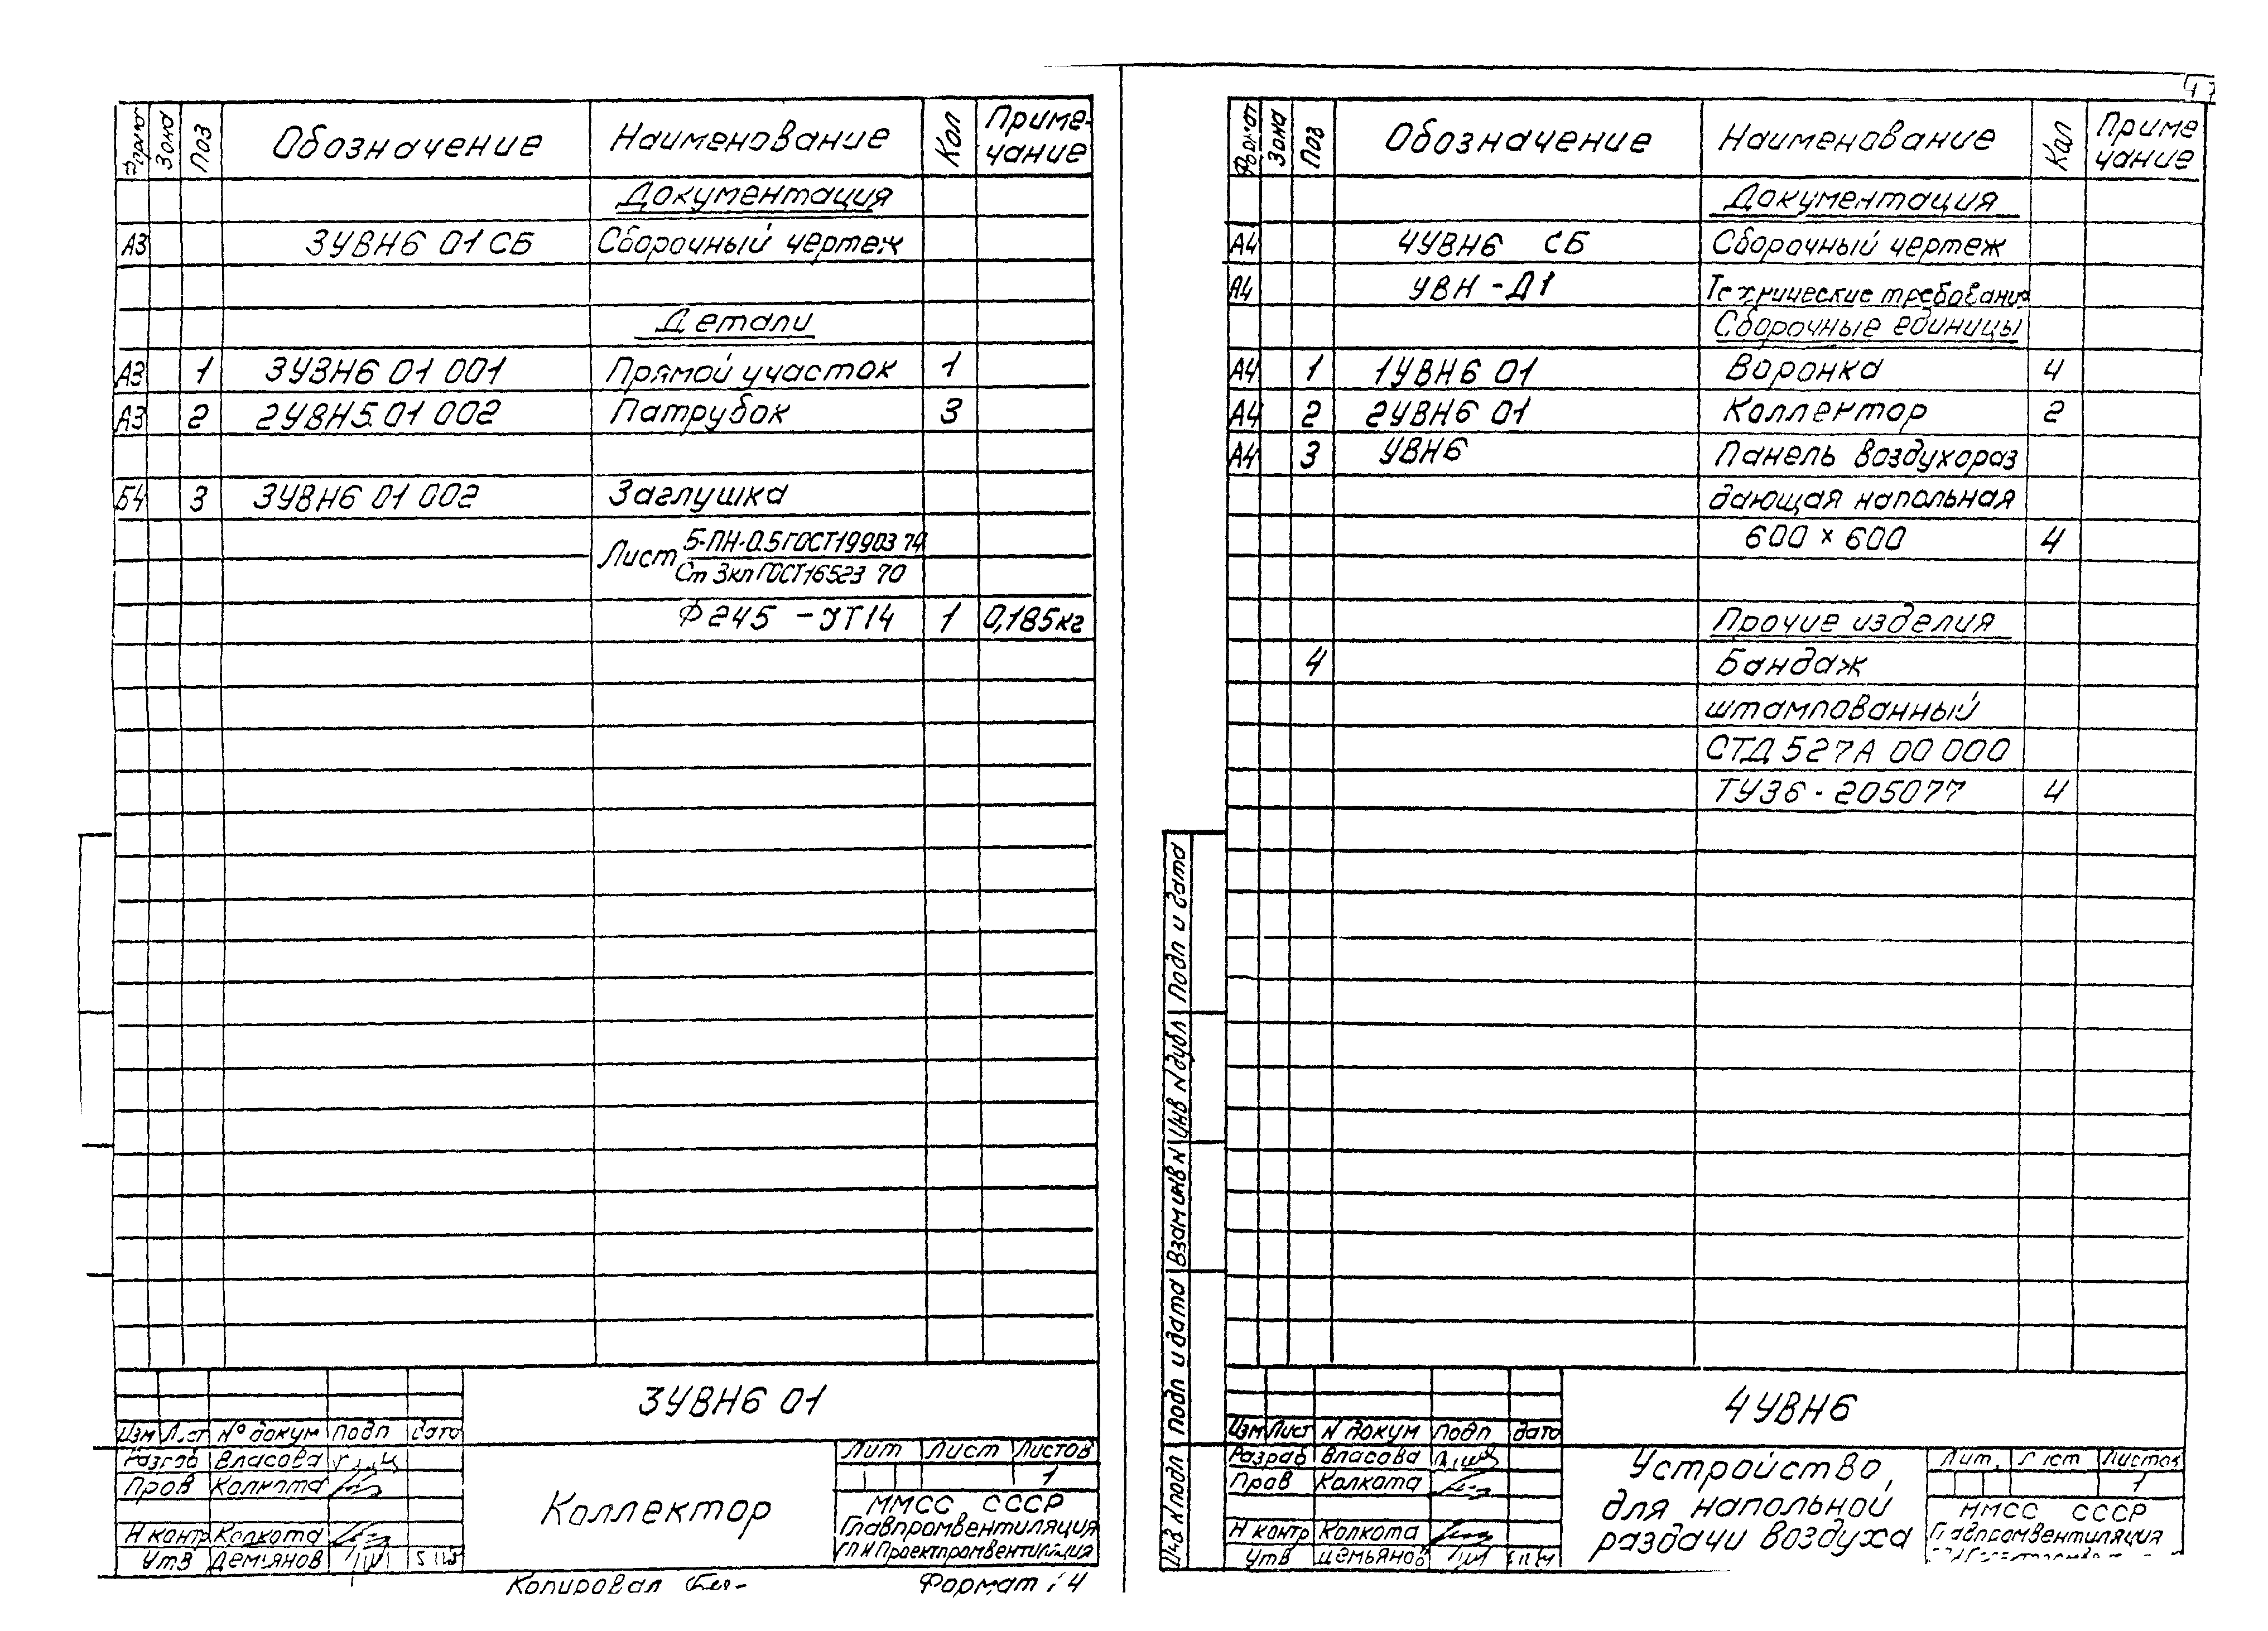 Формат Зона Поз Обозначение Наименование Кол Приме-чание
Документация
А3 3УВН6 01 СБ Сборочный чертеж
Детали
А3 1 3УВН6 01 001 Прямой участок 1
А3 2 2УВН5.01 002 Патрубок 3
Б4 3 3УВН6 01 002 Заглушка
Лист Б-ПН-0.5 ГОСТ19903 74
Ст 3кп ГОСТ16523 70
Ф245 -УТ14 1 0,185кг
3УВН6 01
Изм Лист № докум Подп Дата
Разраб Власова
Пров Колкота
Н контр Колкота
Утв Демьянов
Коллектор
Лит Лист Листов
1
ММСС СССР
Главпромвентиляция
ГПИ Проектпромвентиляция
Копировал
Формат 4
47
Формат Зона Поз Обозначение Наименование Кол Приме чание
Документация
А4 4УВН6 СБ Сборочный чертеж
А4 УВН -Д1 Технические требования
Сборочные единицы
А4 1 1УВН6 01 Воронка 4
А4 2 2УВН6 01 Коллектор 2
А4 3 УВН6 Панель воздухораз
дающая напольная
600 × 600 4
Прочие изделия
4 Бандаж
штампованный
СТД 527А 00 000
ТУ36 - 205077 4
Инв N подл Подп и дата Взам инв N Инв N дубл Подп и дата
4УВН6
Изм Лист N докум Подп Дата
Разраб Власова
Пров Колкота
Н контр Колкота
Утв Демьянов
Устройство,
для напольной
раздачи воздуха
Лит. Лист Листов
1
ММСС СССР
Главпромвентиляция